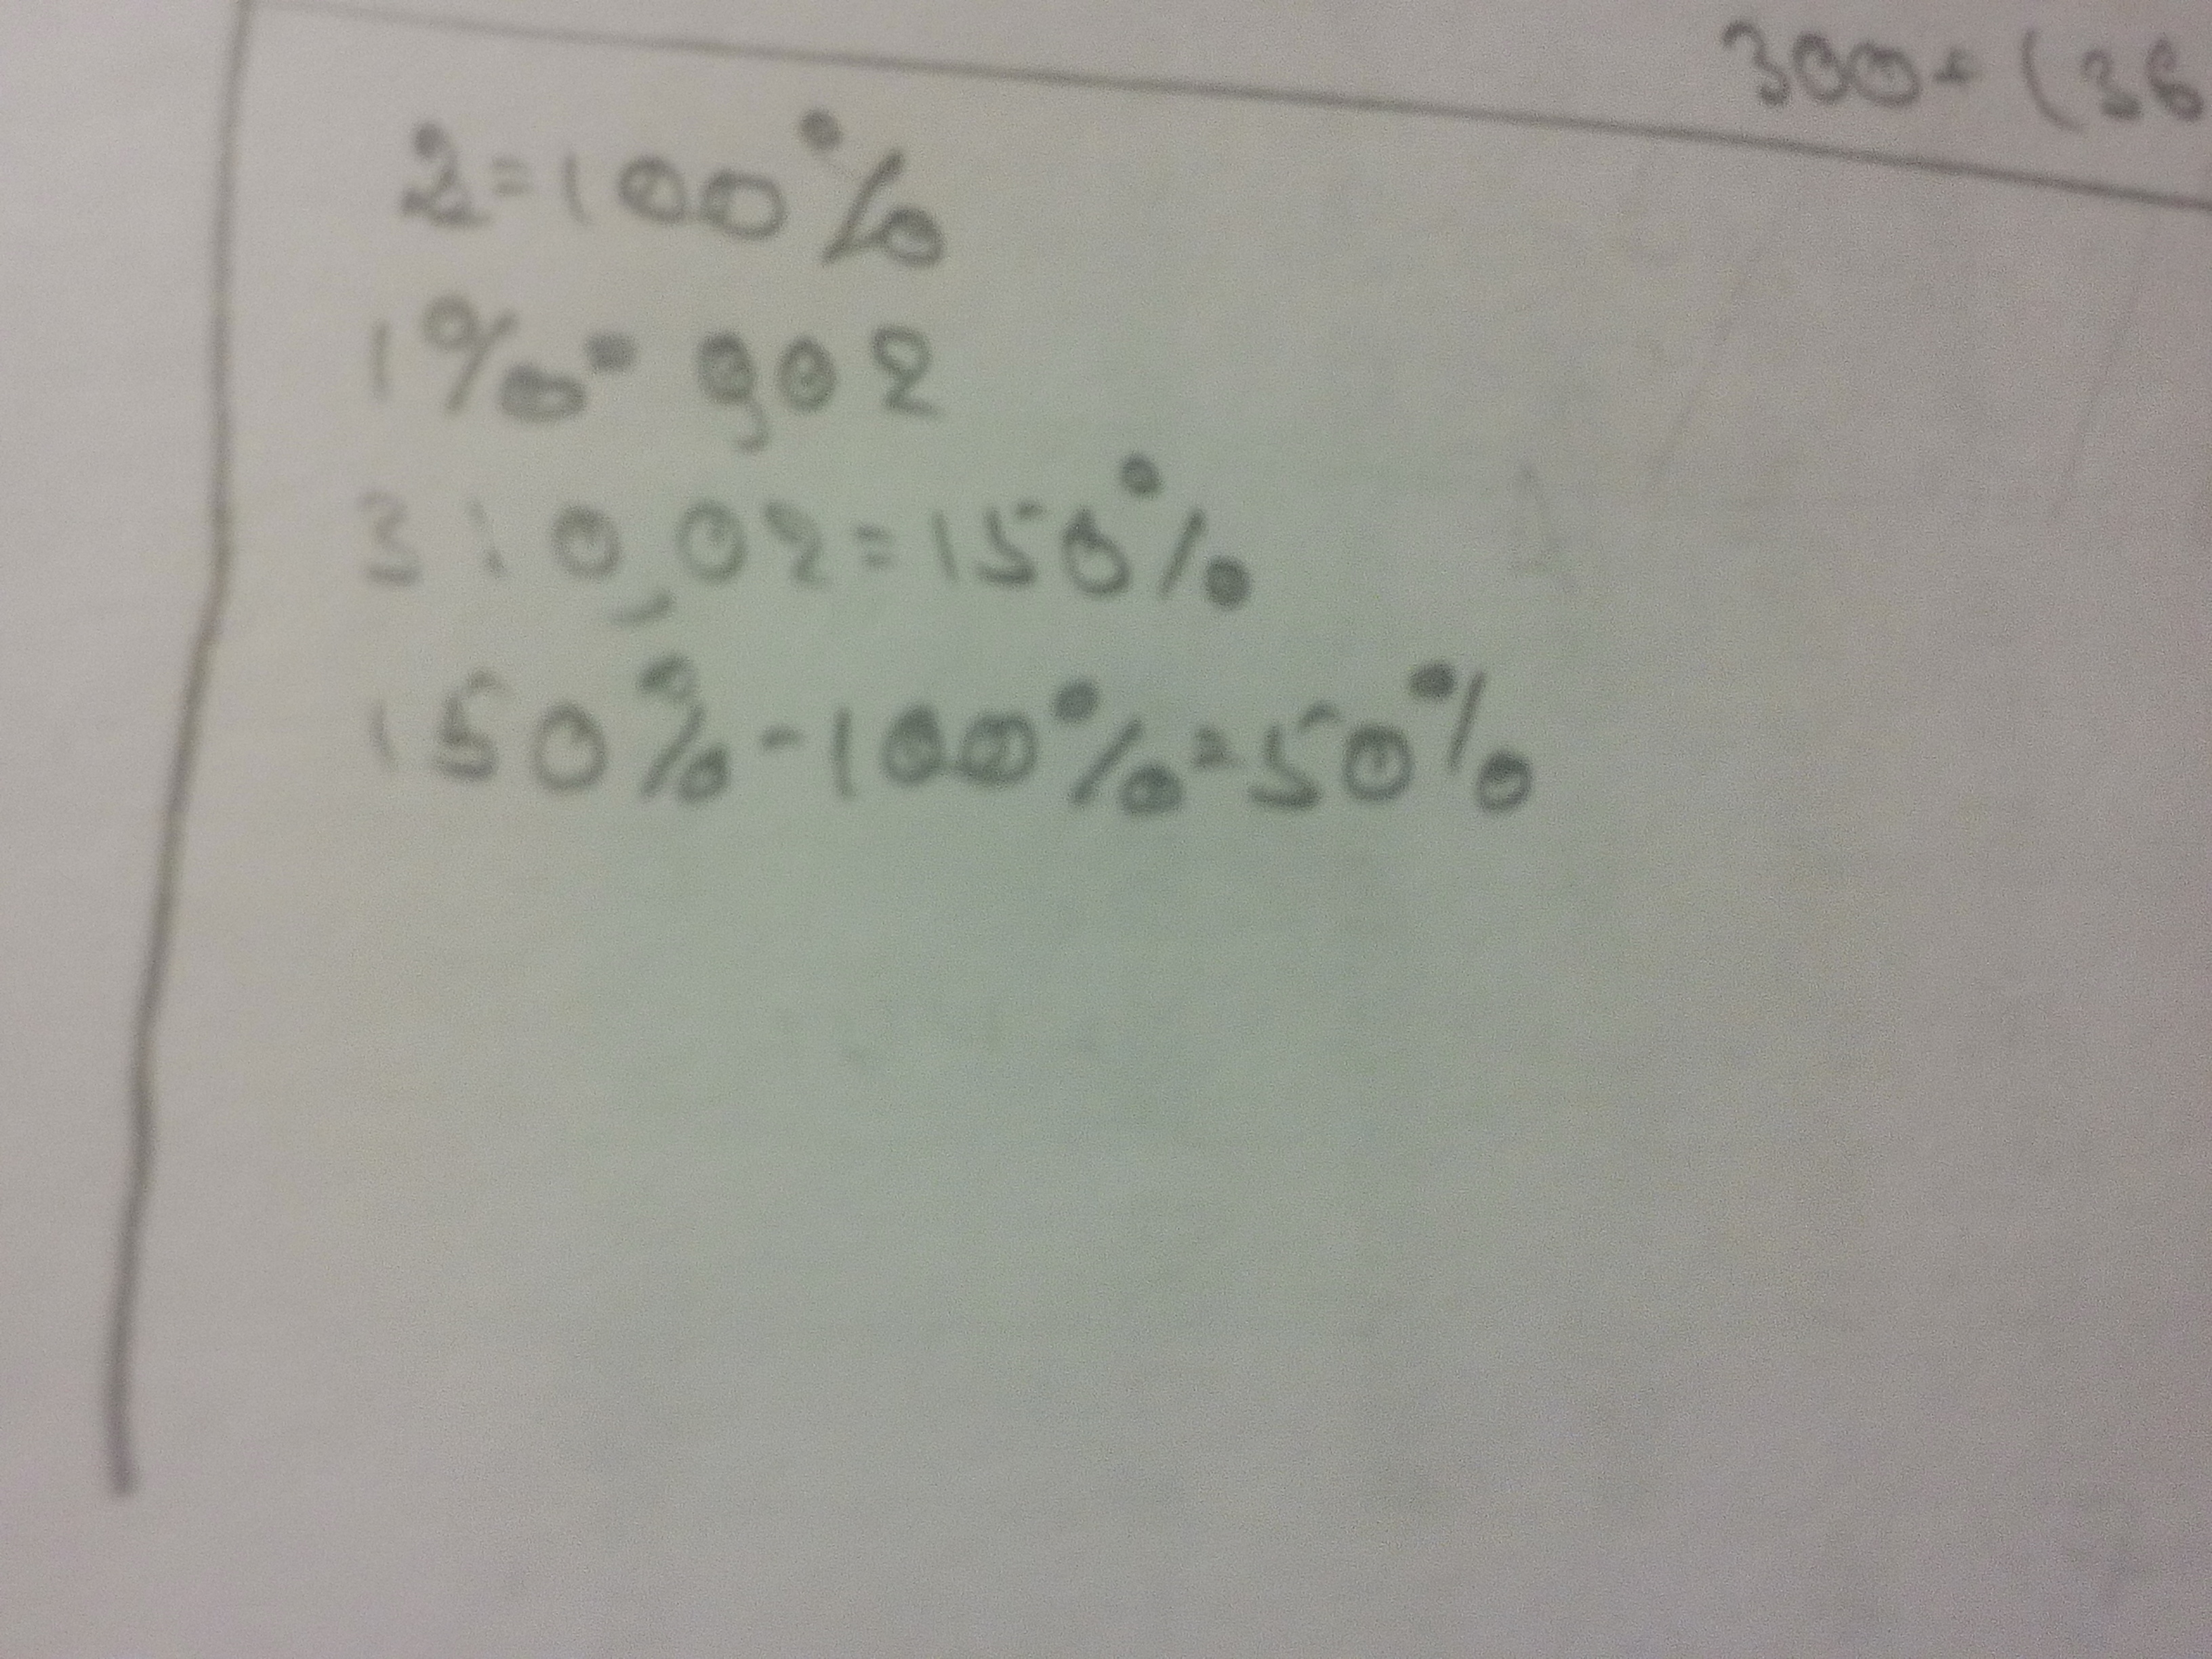 300+(36
2=100%
1%=0,02
3:0,02=150%
150%-100%=50%